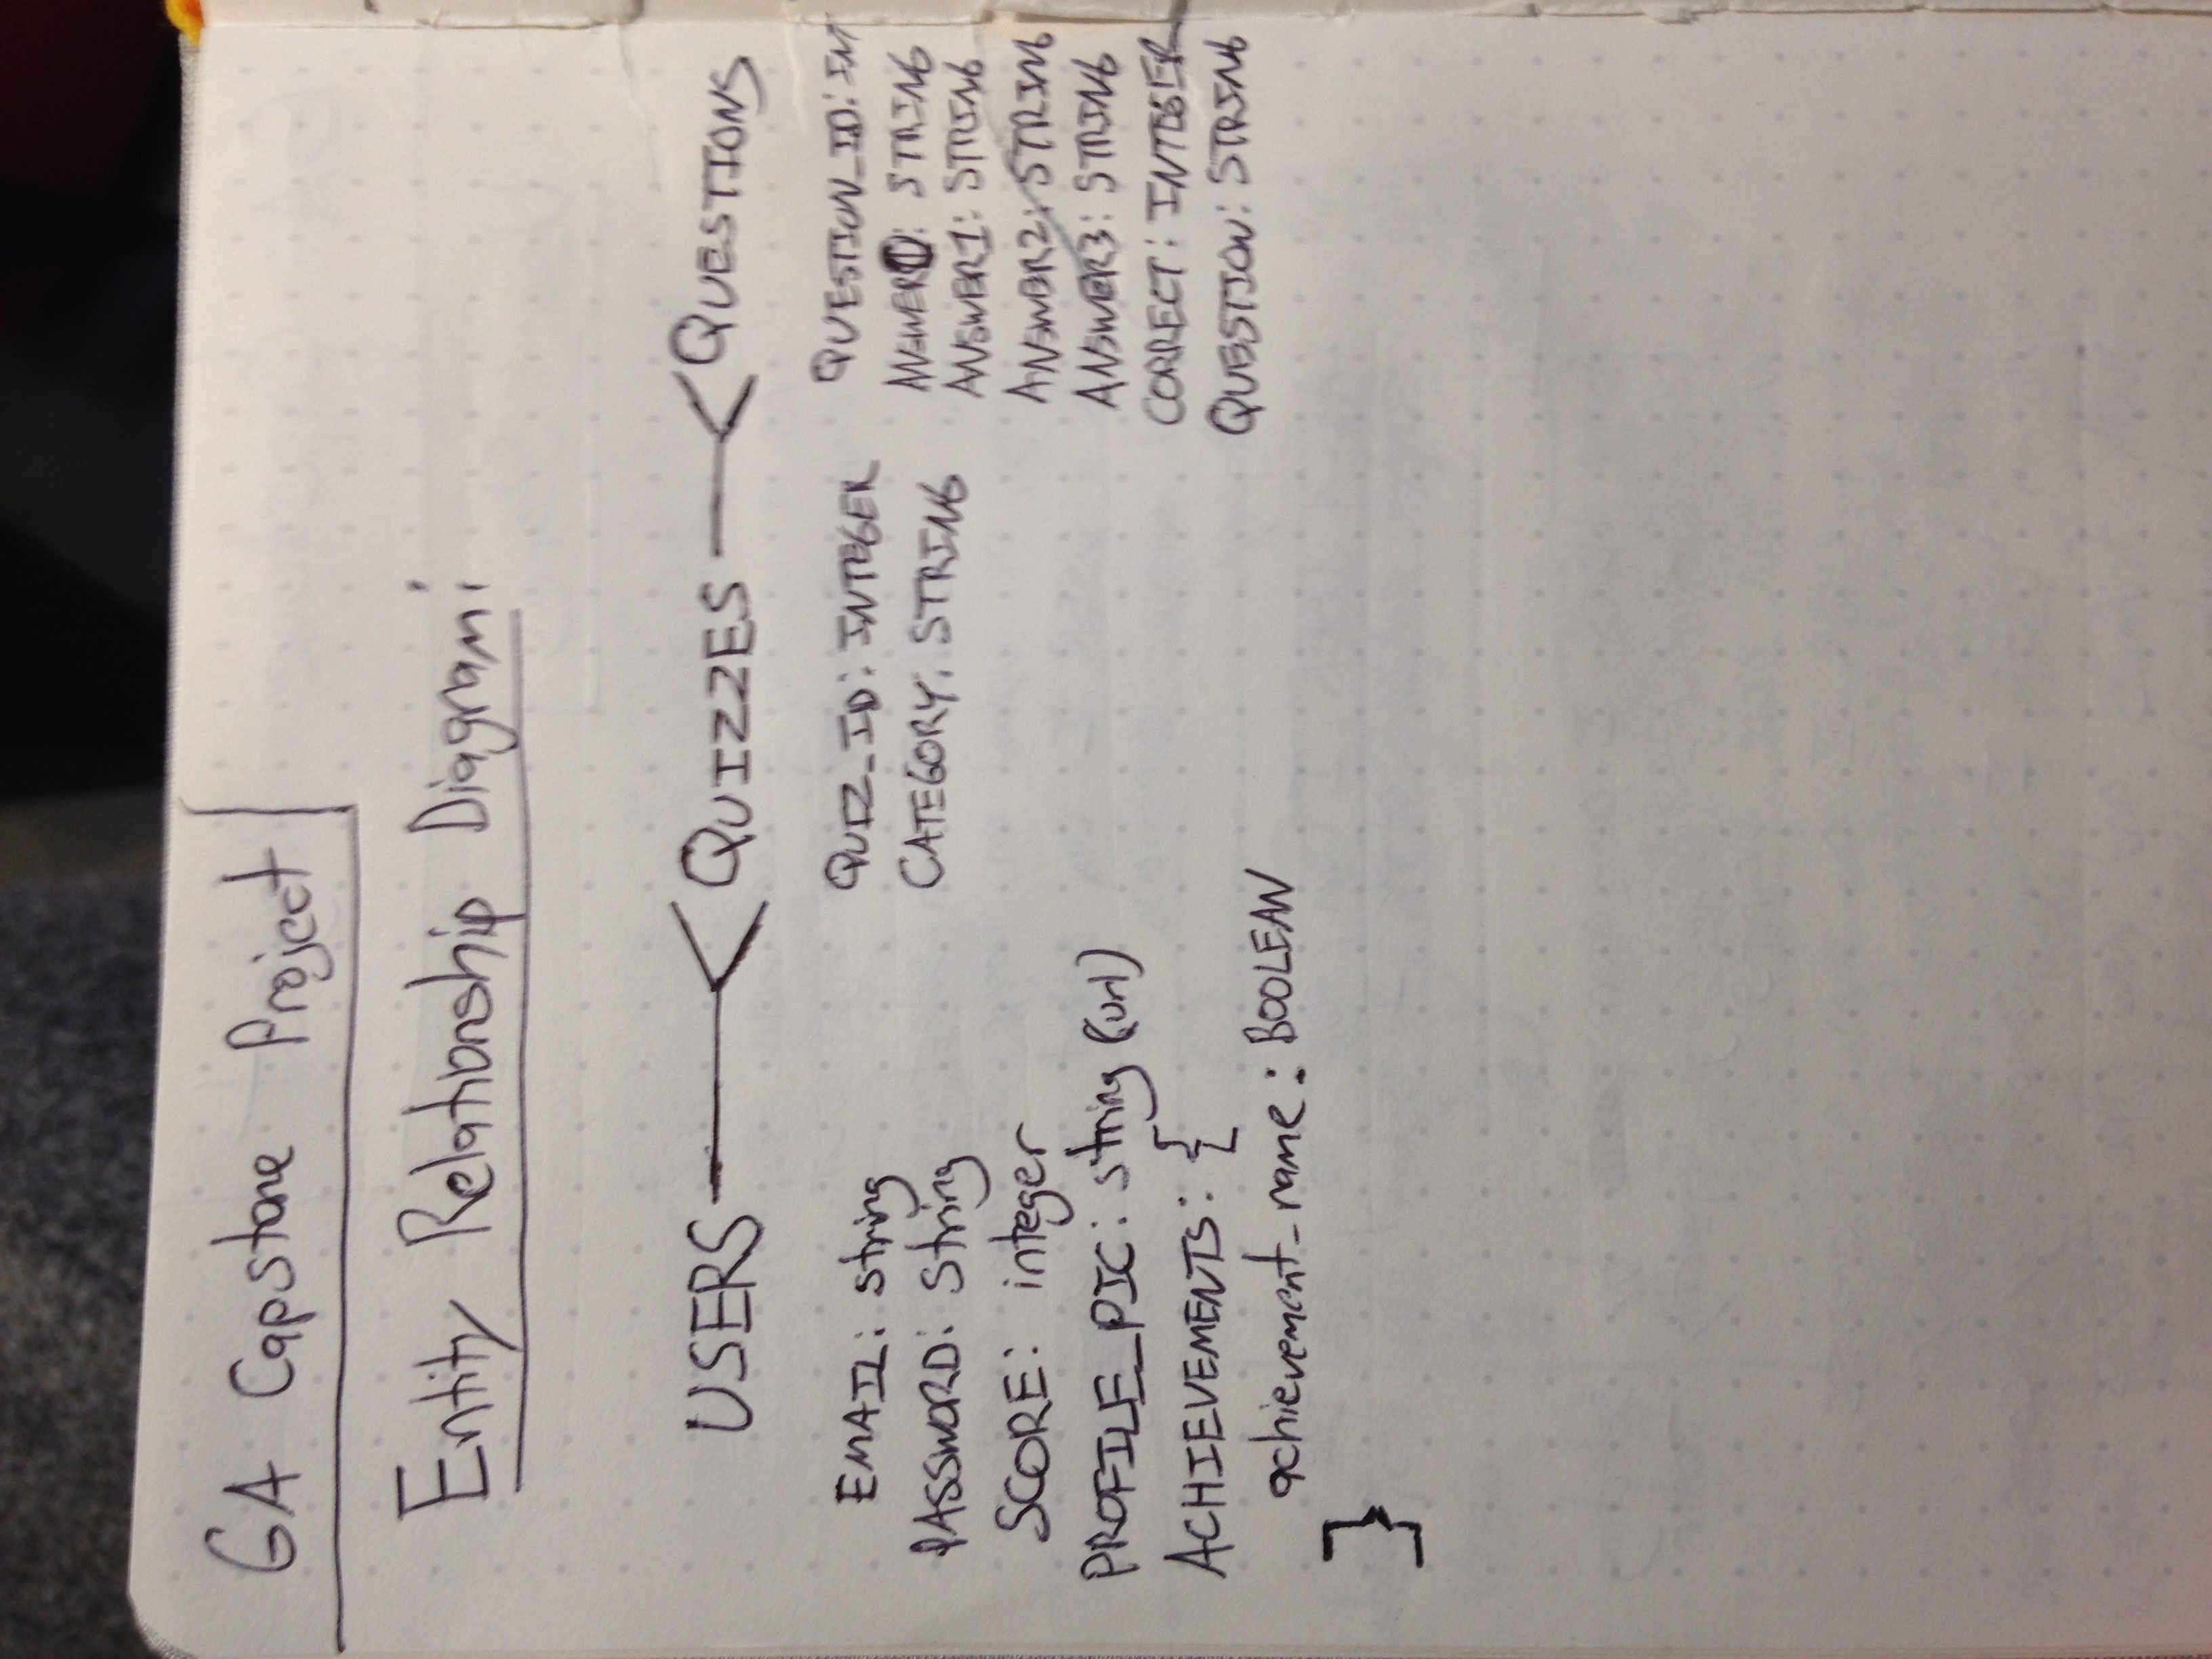 GA Capstone Project
Entity Relationship Diagram:
USERS QUIZZES QUESTIONS
EMAIL: string
PASSWORD: string
SCORE: integer
PROFILE_PIC: string (url)
ACHIEVEMENTS: {
achievement_name: BOOLEAN
}
QUIZ_ID: INTEGER
CATEGORY: STRING
QUESTION_ID: INT
ANSWER0: STRING
ANSWER1: STRING
ANSWER2: STRING
ANSWER3: STRING
CORRECT: INTEGER
QUESTION: STRING